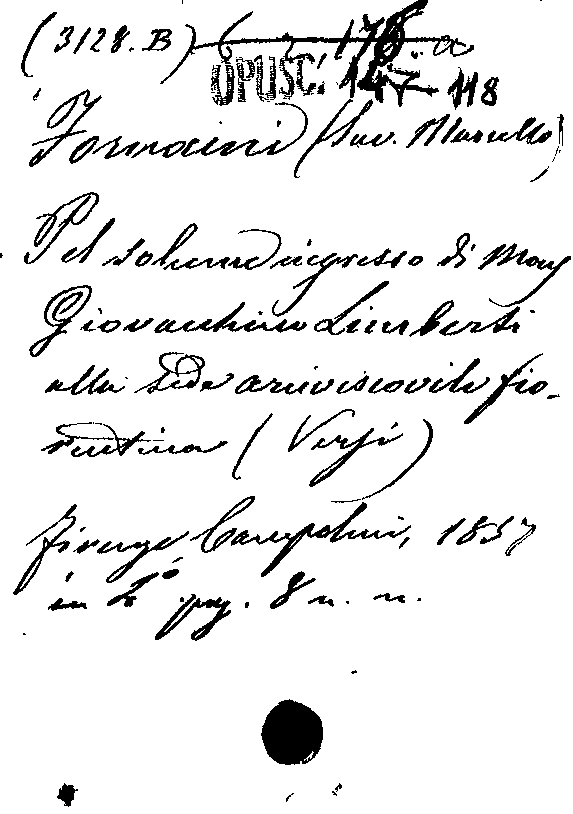 (3128.B)
OPUSC. 147-118
Formaini (Sac. Marcello)
Pel solenne ingresso di Mons
Giovacchino Limberti
alla sede arcivescovile fio-
rentina (Versi)
Firenze Campolmi, 1857
in 2° pag. 8 n. n.